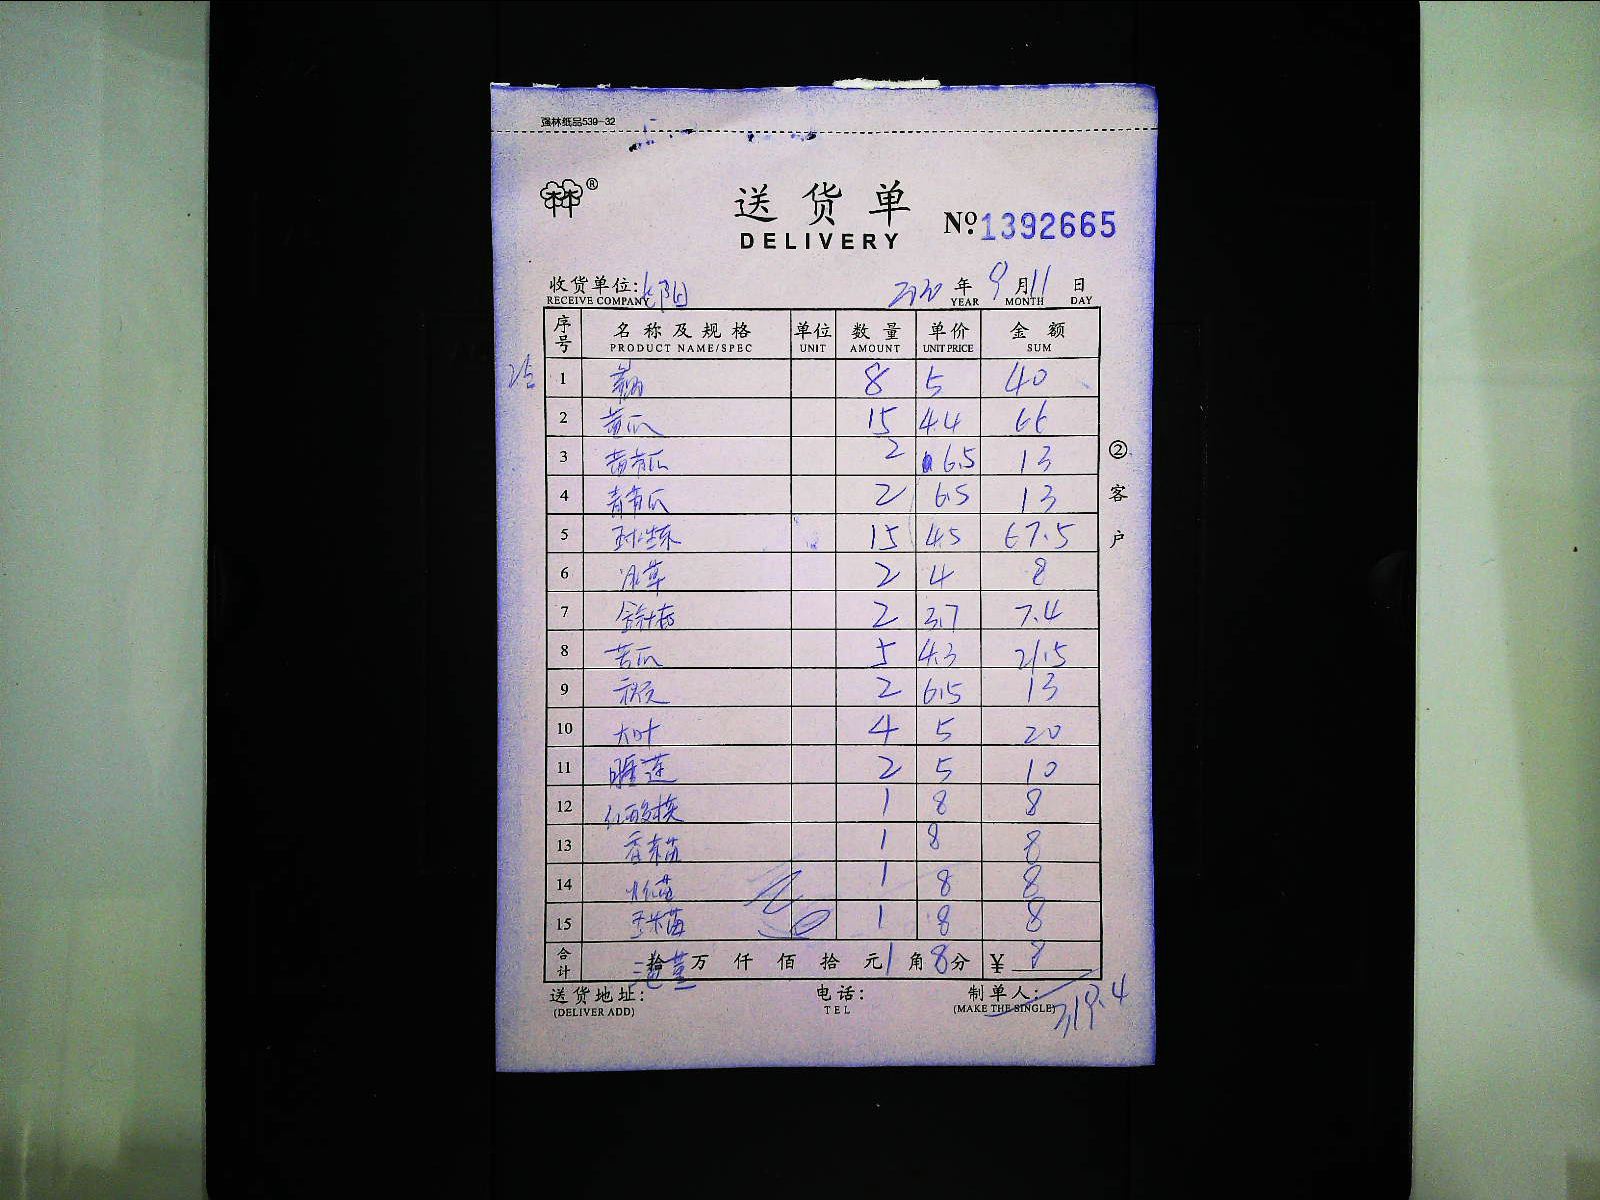 强林纸品539-32
林林 ®
送货单
DELIVERY
No:1392665
收货单位: 阳 2020 年 9 月 11 日
RECEIVE COMPANY YEAR MONTH DAY
序号 名称及规格 单位 数量 单价 金额
PRODUCT NAME/SPEC UNIT AMOUNT UNIT PRICE SUM
1 8 5 40
2 黄瓜 15 4.4 66
3 黄节瓜 2 6.5 13
4 青节瓜 2 6.5 13
5 15 4.5 67.5
6 冰草 2 4 8
7 金针菇 2 3.7 7.4
8 苦瓜 5 4.3 21.5
9 秋元 2 6.5 13
10 大叶 4 5 20
11 睡莲 2 5 10
12 红酸模 1 8 8
13 香菜苗 1 8 8
14 苗 1 8 8
15 玉米苗 1 8 8
合计 拾 万 仟 佰 拾 元 1 角 8 分 ¥ 8
② 客户
送货地址: 电话: 制单人:
(DELIVER ADD) TEL (MAKE THE SINGLE)
319.4